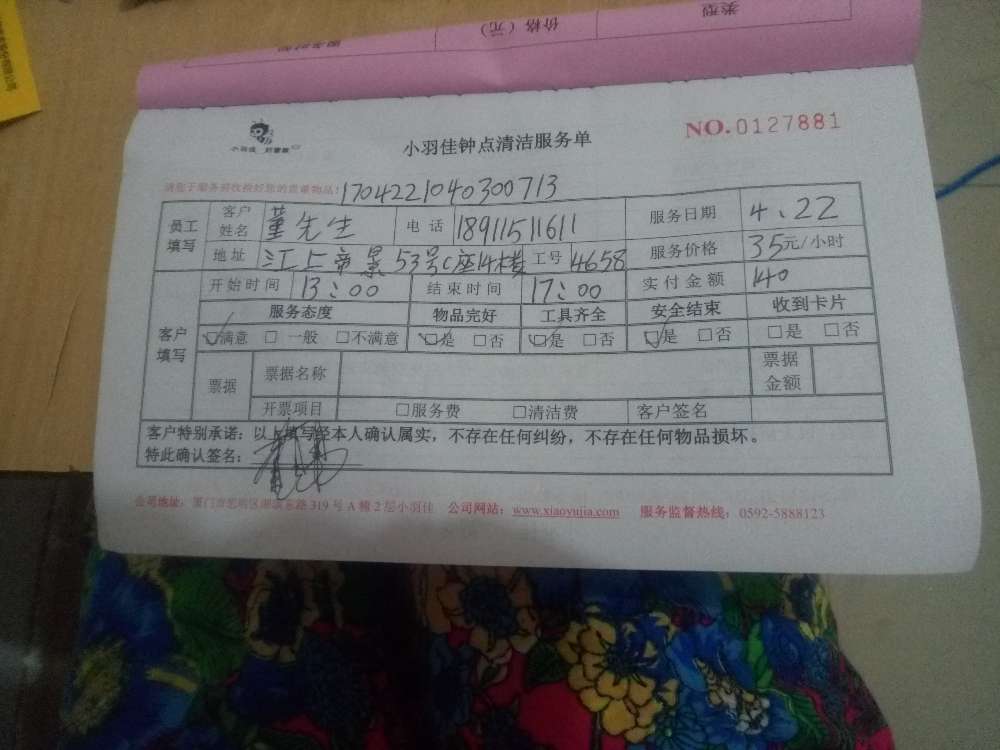 类型
价格（元）
服务时间
小羽佳 好管家
小羽佳钟点清洁服务单
NO.0127881
请您于服务前收拾好您的贵重物品！1704221040300713
员工填写 客户姓名 董先生 电话 18911511611 服务日期 4.22
地址 江上帝景53号C座14楼 工号 4658 服务价格 35元/小时
客户填写 开始时间 13:00 结束时间 17:00 实付金额 140
服务态度 物品完好 工具齐全 安全结束 收到卡片
☑满意 □一般 □不满意 ☑是 □否 ☑是 □否 ☑是 □否 □是 □否
票据 票据名称 票据金额
开票项目 □服务费 □清洁费 客户签名
客户特别承诺：以上填写经本人确认属实，不存在任何纠纷，不存在任何物品损坏。
特此确认签名：
公司地址：厦门市思明区湖滨东路319号A幢2层小羽佳 公司网站：www.xiaoyujia.com 服务监督热线：0592-5888123